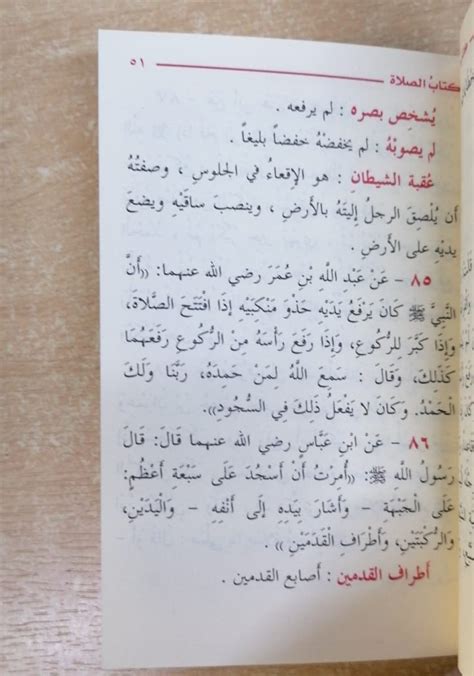 كتابُ الصلاة ٥١
يُشخِص بصره : لم يرفعه .
لم يصوبْهُ : لم يخفضْهُ خفضاً بليغاً .
عُقبة الشيطانِ : هو الإقعاءُ في الجلوسِ ، وصفتُهُ
أن يُلْصِقَ الرجلُ إليتَهُ بالأرضِ ، وينصبَ ساقيْهِ ويضعَ
يديْهِ على الأرضِ .
٨٥ - عَنْ عَبْدِ اللَّهِ بْنِ عُمَرَ رضي الله عنهما: «أَنَّ
النَّبِيَّ ﷺ كَانَ يَرْفَعُ يَدَيْهِ حَذْوَ مَنْكِبَيْهِ إِذَا افْتَتَحَ الصَّلاَةَ،
وَإِذَا كَبَّرَ لِلرُّكُوعِ، وَإِذَا رَفَعَ رَأْسَهُ مِنَ الرُّكُوعِ رَفَعَهُمَا
كَذَلِكَ، وَقَالَ : سَمِعَ اللَّهُ لِمَنْ حَمِدَهُ، رَبَّنَا وَلَكَ
الْحَمْدُ. وَكَانَ لا يَفْعَلُ ذَلِكَ فِي السُّجُودِ».
٨٦ - عَنِ ابْنِ عَبَّاسٍ رضي الله عنهما قَالَ: قَالَ
رَسُولُ اللَّهِ ﷺ: «أُمِرْتُ أَنْ أَسْجُدَ عَلَى سَبْعَةِ أَعْظُمٍ:
عَلَى الْجَبْهَةِ - وَأَشَارَ بِيَدِهِ إِلَى أَنْفِهِ - وَالْيَدَيْنِ،
وَالرُّكْبَتَيْنِ، وَأَطْرَافِ الْقَدَمَيْنِ» .
أطراف القدمين : أصابع القدمين .